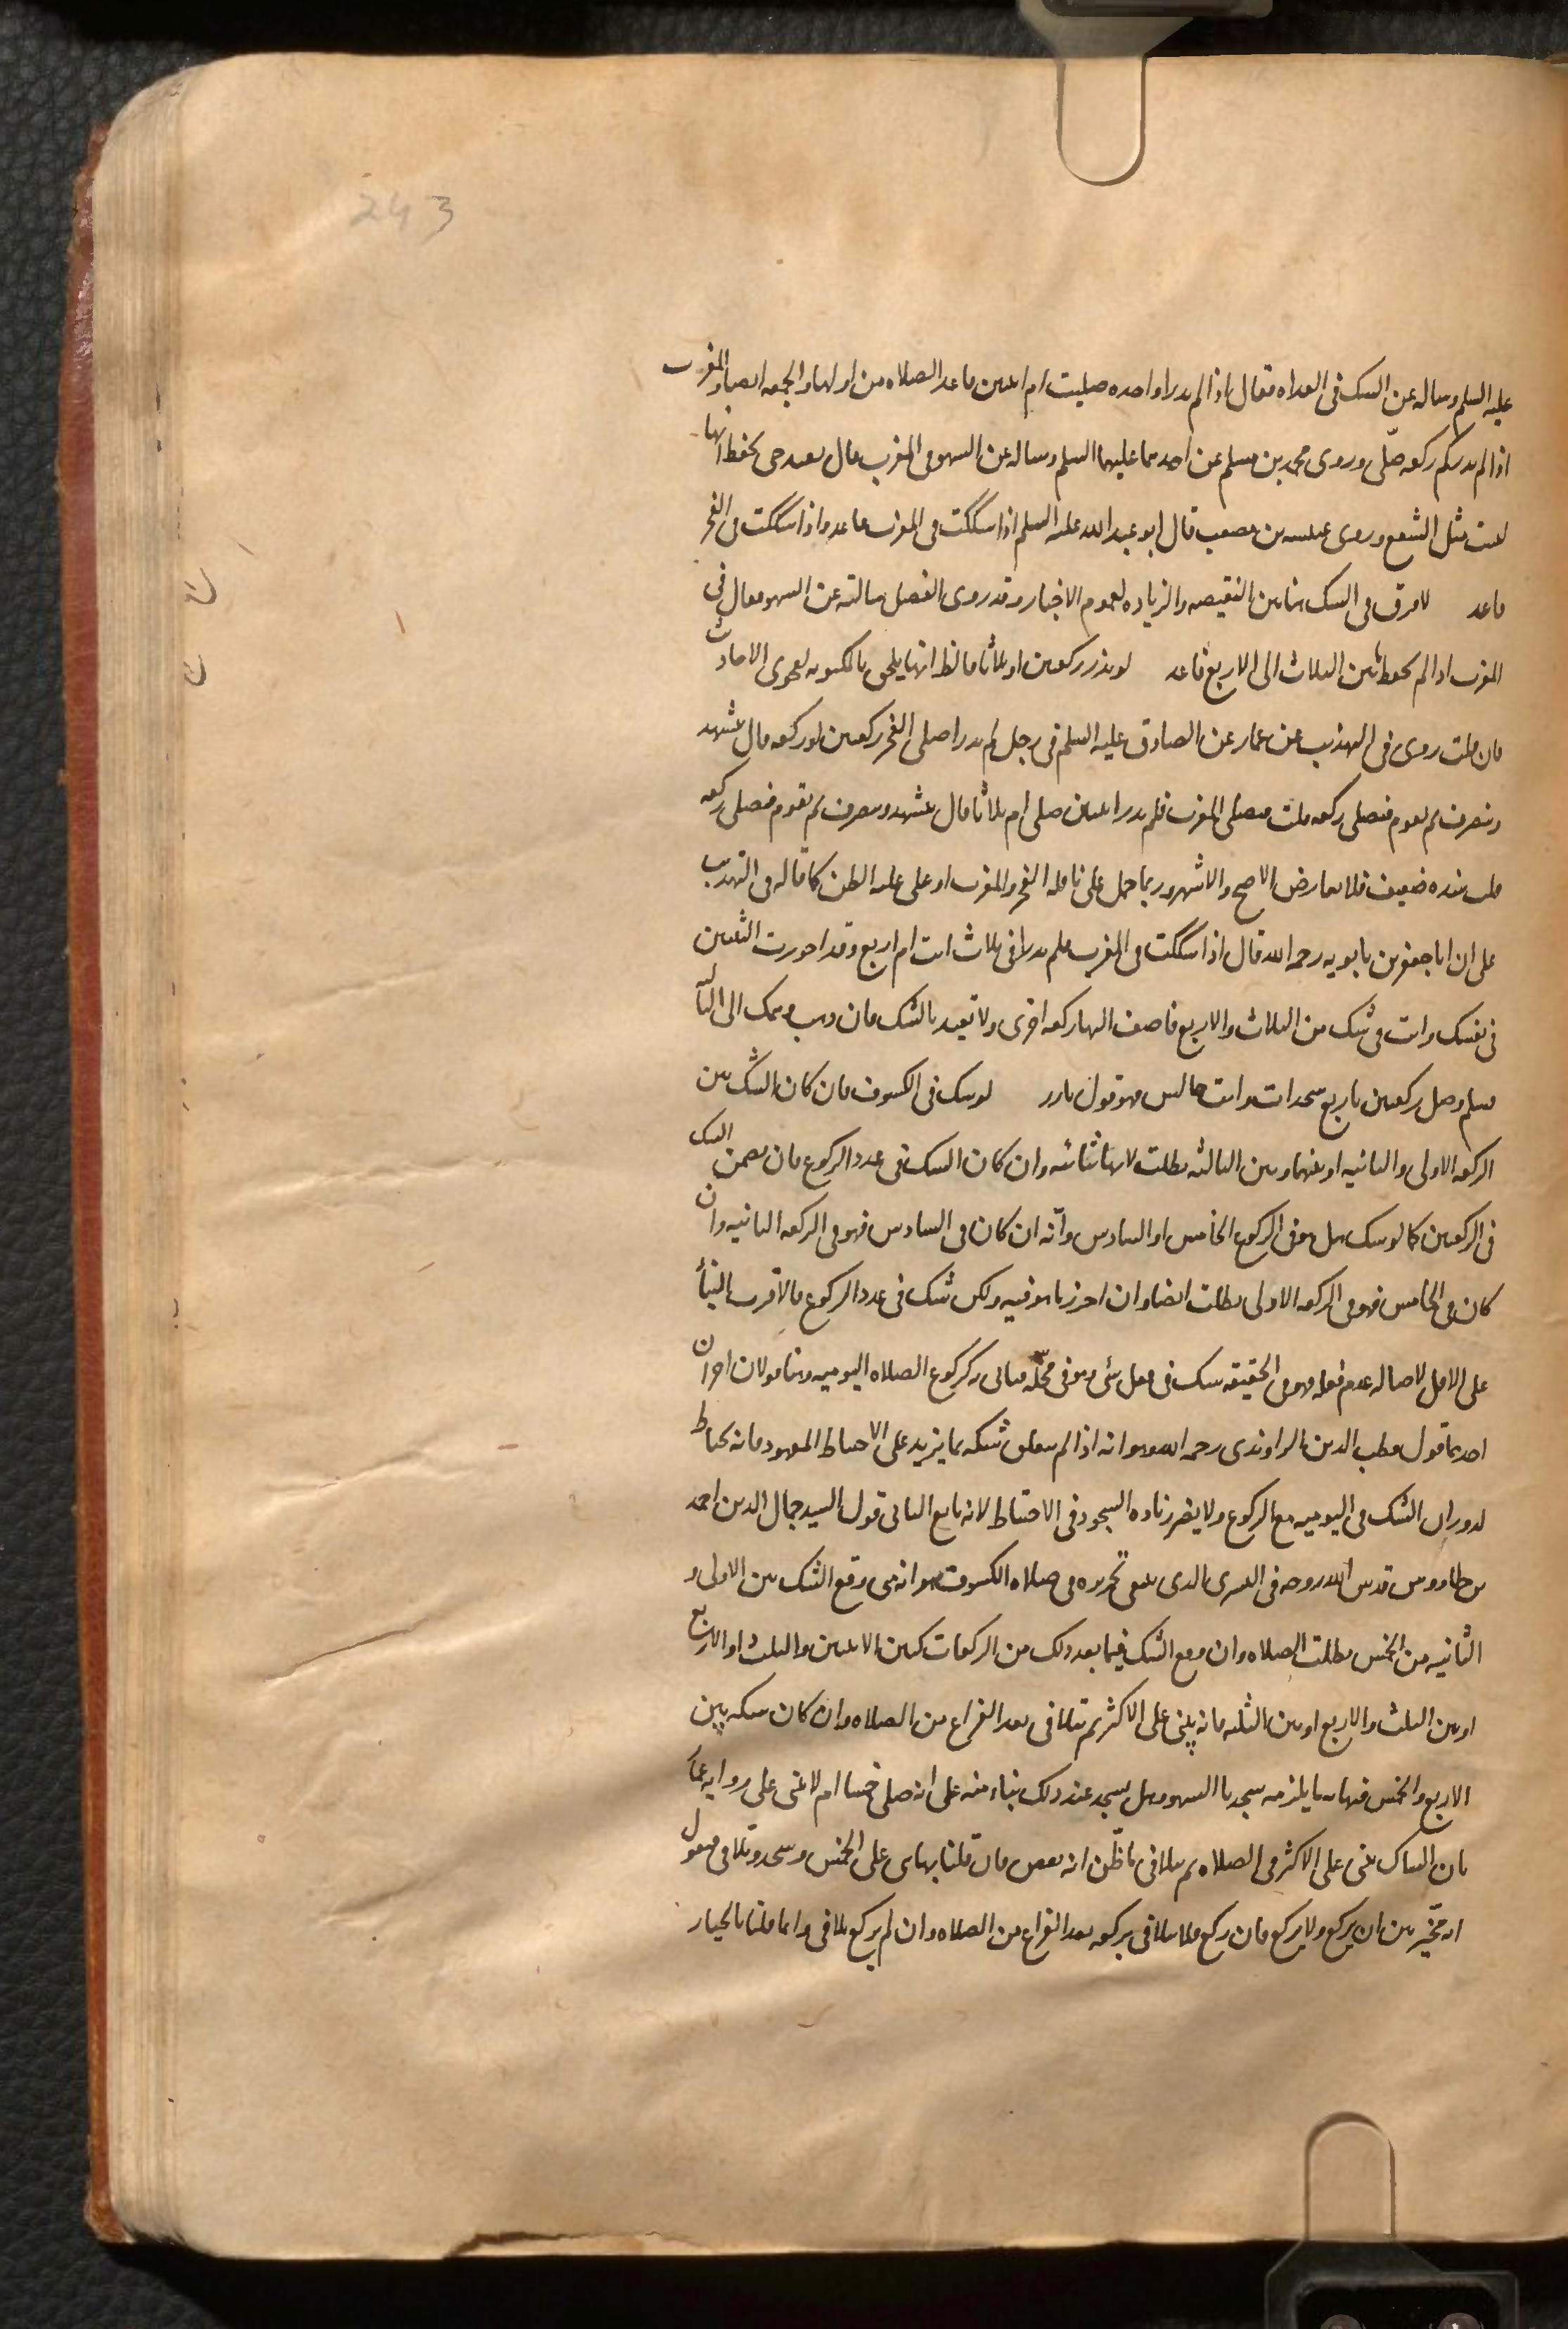 243
عليه السلم وساله عن الشك فى الغداه فقال اذا لم يدر اواحده صليت ام اثنين فاعد الصلاه من اولها والجمعه ايضا والمغرب
اذا لم يدر كم ركعه صلّى وروى محمد بن مسلم عن احدهما عليهما السلم وساله عن السهو فى المغرب قال يعيد حتى يحفظ انها
ليست مثل الشفع وروى عنبسه بن مصعب قال ابو عبد الله عليه السلم اذا شككت فى المغرب فاعد واذا شككت فى الفجر
فاعد لا فرق فى الشك هنا بين النقيصه والزياده لعموم الاخبار وقد روى الفضل سالته عن السهو فقال فى
المغرب اذا لم تحفظ ما بين الثلاث الى الاربع فاعد لو نذر ركعتين او ثلاثا فالظ انها يلحق بالمكتوبه لفحوى الاحاديث
فان قلت روى فى التهذيب عن عمار عن الصادق عليه السلم فى رجل لم يدر اصلى الفجر ركعتين او ركعه قال يتشهد
وينصرف ثم يقوم فيصلى ركعه قلت فيصلى المغرب فلم يدر اثنتين صلى ام ثلاثا قال يتشهد وينصرف ثم يقوم فيصلى ركعه
قلت سنده ضعيف فلا يعارض الاصح والاشهر وربما حمل على نافله الفجر والمغرب او على غلبه الظن كما قاله فى التهذيب
على ان ابا جعفر بن بابويه رحمه الله قال اذا شككت فى المغرب فلم تدر افى ثلاث انت ام اربع وقد احرزت الثنتين
فى نفسك وانت فى شك من الثلاث والاربع فاضف اليها ركعه اخرى ولا تعيد بالشك فان ذهب وهمك الى الثالثه
فسلم وصل ركعتين باربع سجدات وانت جالس وهو قول نادر لو شك فى الكسوف فان كان الشك بين
الركعه الاولى والثانيه او بينهما وبين الثالثه بطلت لانها ثنائيه وان كان الشك فى عدد الركوع فان تضمن الشك
فى الركعتين كما لو شك هل هو فى الركوع الخامس او السادس وانه ان كان فى السادس فهو فى الركعه الثانيه وان
كان فى الخامس فهو فى الركعه الاولى بطلت ايضا وان احرز ما هو فيه ولكن شك فى عدد الركوع فالاقرب البناء
على الاقل لاصاله عدم فعله وهو فى الحقيقه شك فى فعل شى وهو فى محله فياتى به كركوع الصلاه اليوميه وهنا قولان اخران
احدهما قول قطب الدين الراوندى رحمه الله وهو انه اذا لم يتعلق شكه بما يزيد على الاحتياط المعهود فانه يحتاط
لدوران الشك فى اليوميه مع الركوع ولا يضر زياده السجود فى الاحتياط لانه تابع الثانى قول السيد جمال الدين احمد
بن طاووس قدس الله روحه فى البشرى الذى ينبغى تحريره فى صلاه الكسوف هو انه متى وقع الشك بين الاولى و
الثانيه من الخمس بطلت الصلاه وان وقع الشك فيما بعد ذلك من الركعات كبين الاثنتين والثلث او الاربع
او بين الثلث والاربع او بين الثلثه فانه يبنى على الاكثر ثم يتلافى بعد الفراغ من الصلاه وان كان شكه بين
الاربع والخمس فنهايه ما يلزمه سجدتا السهو وهل يسجد عند ذلك بناء منه على انه صلى خمسا ام لا يبنى على روايه عمار
بان الشاك يبنى على الاكثر فى الصلاه ثم يتلافى ما ظن انه نقص فان قلنا بهذا بنى على الخمس وسجد وتلافى ونقول
انه مخيّر بين ان يركع ولا يركع فان ركع فلا يتلافى بركعه بعد الفراغ من الصلاه وان لم يركع تلافى وانما قلنا بالخيار